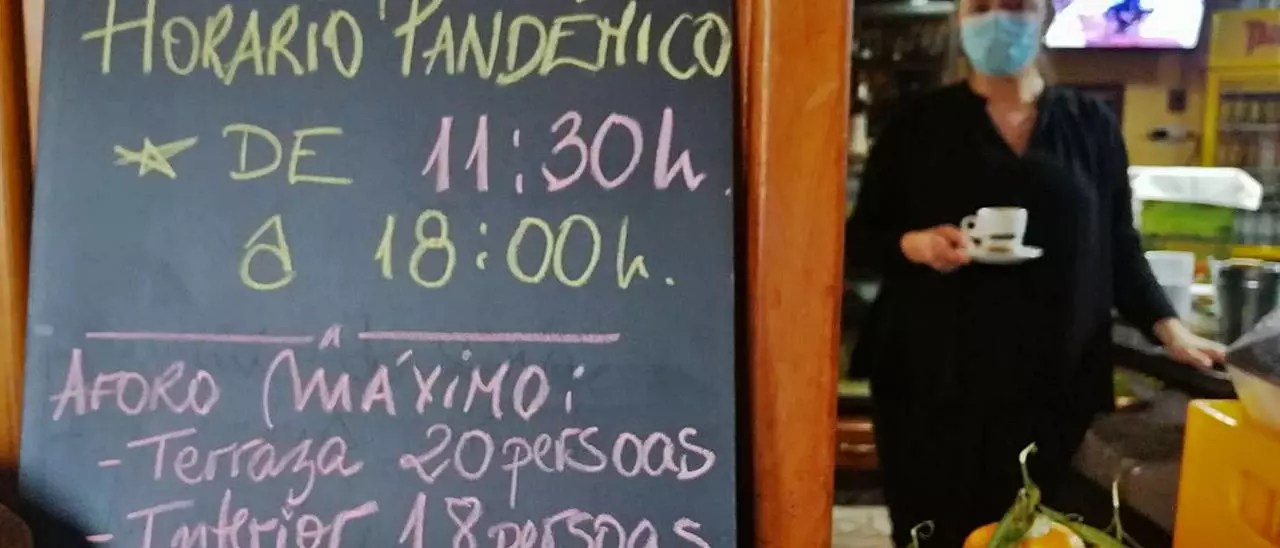 HORARIO PANDÉMICO
★ DE 11:30h.
A 18:00h.
AFORO MÁXIMO:
- Terraza 20 persoas
- Interior 18 persoas